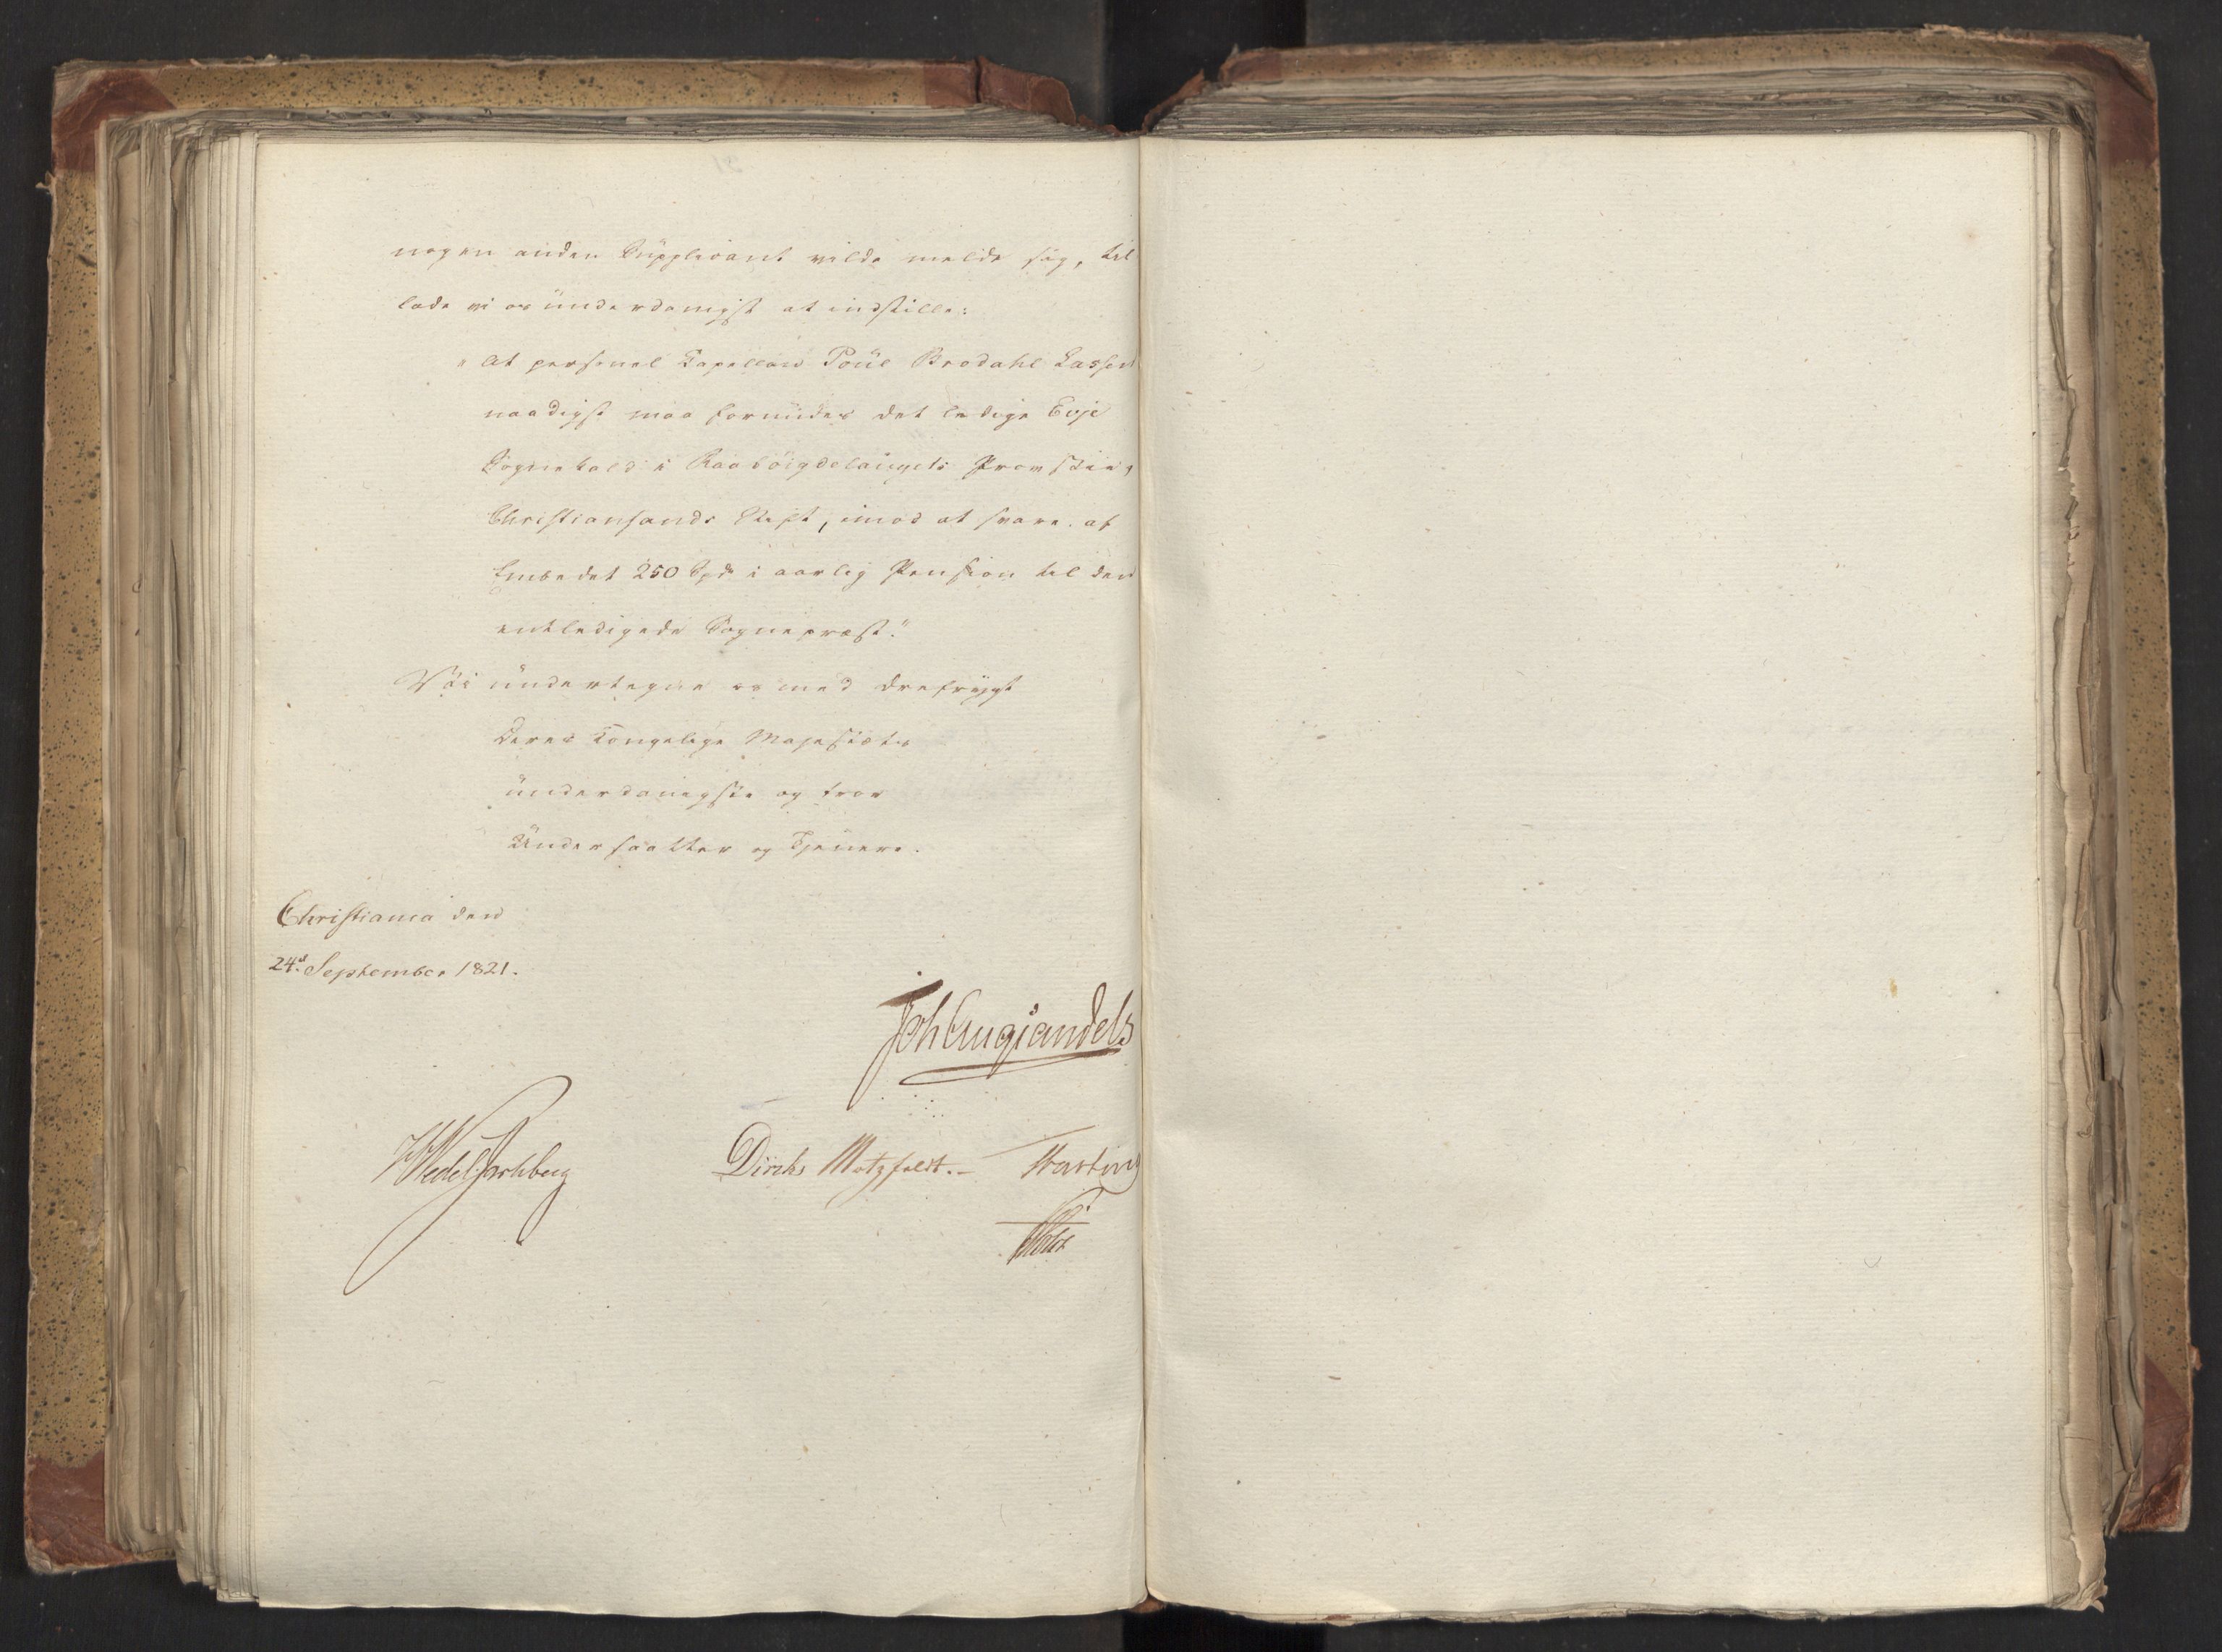 nogen anden Suppliant vilde melde sig, til
lade vi os underdanigst at indstille:
"At personel Capellan Poul Brodahl Lassen
naadigst maa forundes det ledige Evje
Sognekald i Raabøigdelaugets Provstie,
Christiansands Stift, imod at svare af
Embedet 250 Spd i aarlig Pension til den
entledigede Sognepræst."
Vøi undertegne os med Ærefrygt
Deres Kongelige Majestæts
underdanigste og troe
Undersaatter og Tjenere.
Christiania den
24d September 1821.
Joh Aug Sandels
Wedel Jarlsberg
Dirchs Motzfeldt.-
Treschow